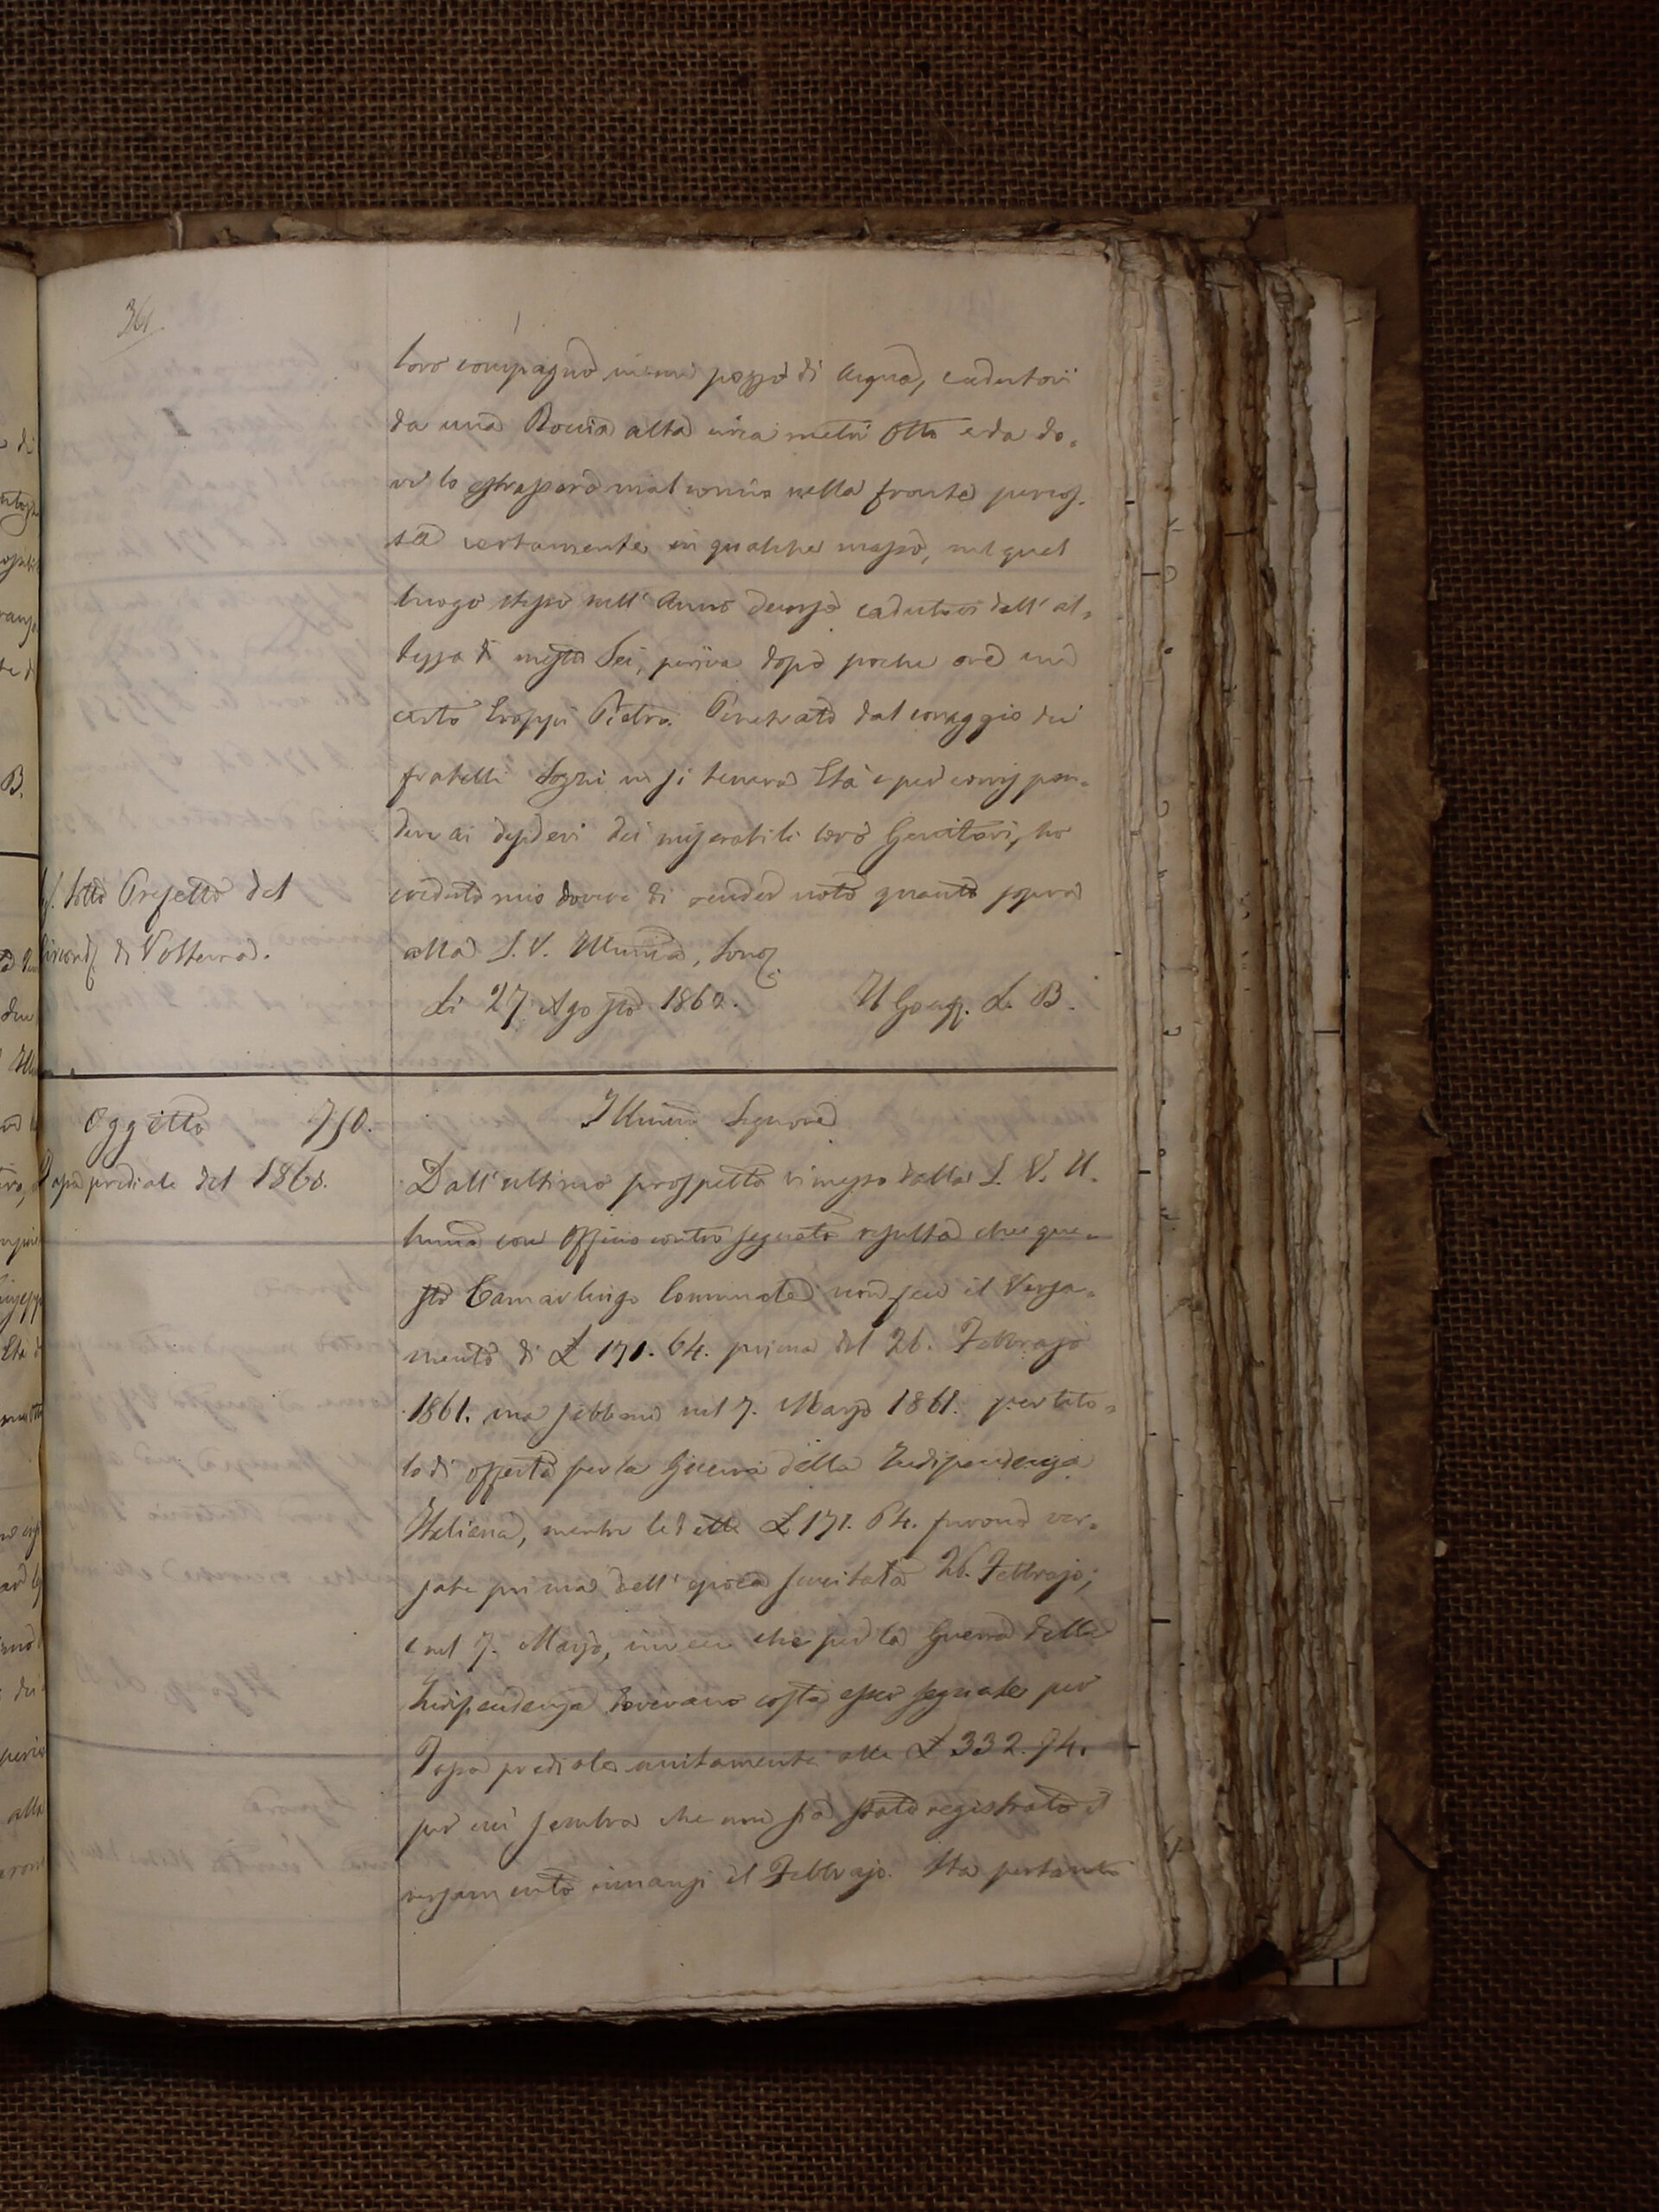 361
loro compagno in un pozzo di acqua, cadutovi
da una Roccia alta circa metri Otto e da do=
ve lo estrassero mal concio nella fronte percos=
sa certamente in qualche masso, nel qual
luogo stesso nell' Anno decorso cadutovi dall' al=
tezza di metri Sei, periva dopo poche ore un
certo Pietro. Penetrato dal coraggio dei
fratelli in sì tenera Età e per corrispon=
dere ai desideri dei miserabili loro Genitori, ho
creduto mio dovere di render noto quanto sopra
alla S. V. Illma,
Li 27 Agosto 1862. Il Gonf. L. B.
Sotto Prefetto del
Circond. di Volterra.
Oggetto 750.
Tassa prediale del 1860.
Illmo Signore
Dall' ultimo prospetto rimesso dalla S. V. Il=
lma con Officio contro segnato resulta che que=
sto Camarlingo Comunale non fece il Versa=
mento di £ 171. 64. prima del 26. Febbrajo
1861. ma sibbene nel 7. Marzo 1861. per tito=
lo di offerta per la Guerra della Indipendenza
Italiana, mentre le dette £ 171. 64. furono ver=
sate prima dell' epoca succitata 26. Febbrajo;
e nel 7. Marzo, invece che per la Guerra della
Indipendenza dovevano costà esser segnate per
Tassa prediale unitamente alle £ 332. 74.
per cui sembra che non sia stato registrato il
versamento innanzi il Febbrajo. Sta pertanto